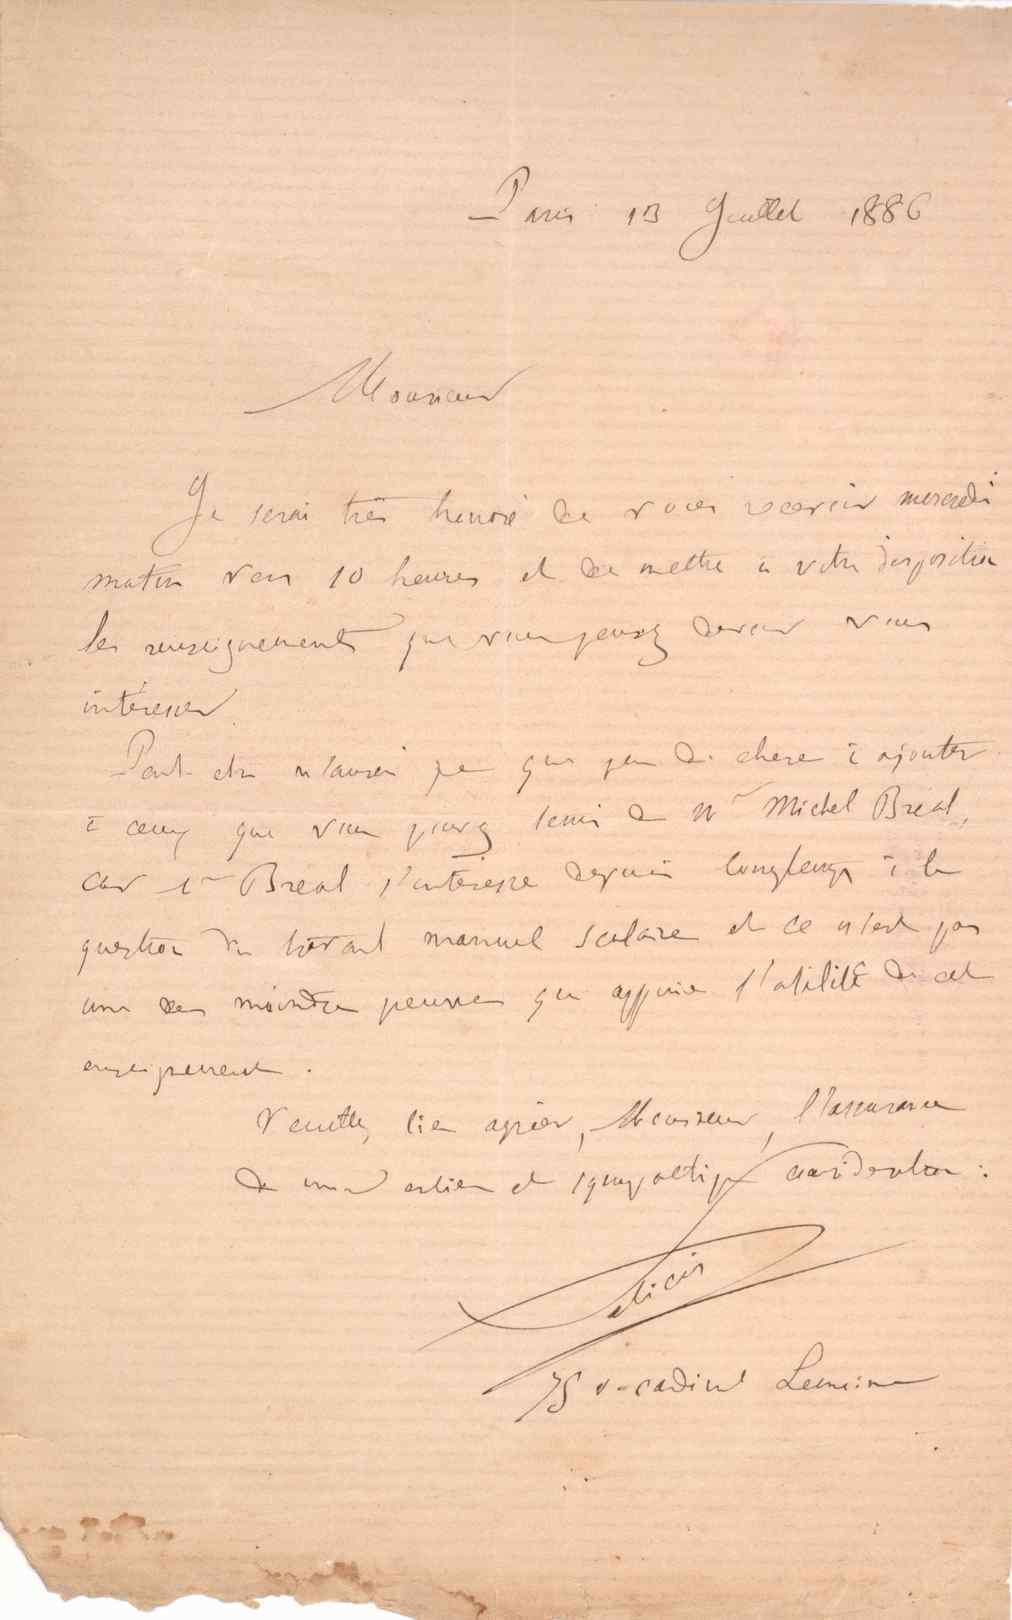 Paris 13 Juillet 1886
Monsieur
Je serai très honoré de vous recevoir mercredi
matin vers 10 heures et de mettre à votre disposition
les renseignements que vous pensez devoir vous
intéresser
Peut-être n'aurai je que peu de chose à ajouter
à ceux que vous pouvez tenir de Mr Michel Bréal,
car Mr Bréal s'intéresse depuis longtemps à la
question du travail manuel scolaire et ce n'est pas
une des moindres preuves que appuie l'utilité de cet
enseignement.
Veuillez bien agréer, Monsieur, l'assurance
de mon entière et sympathique considération :
Salicis
75 r. cardinal Lemoine